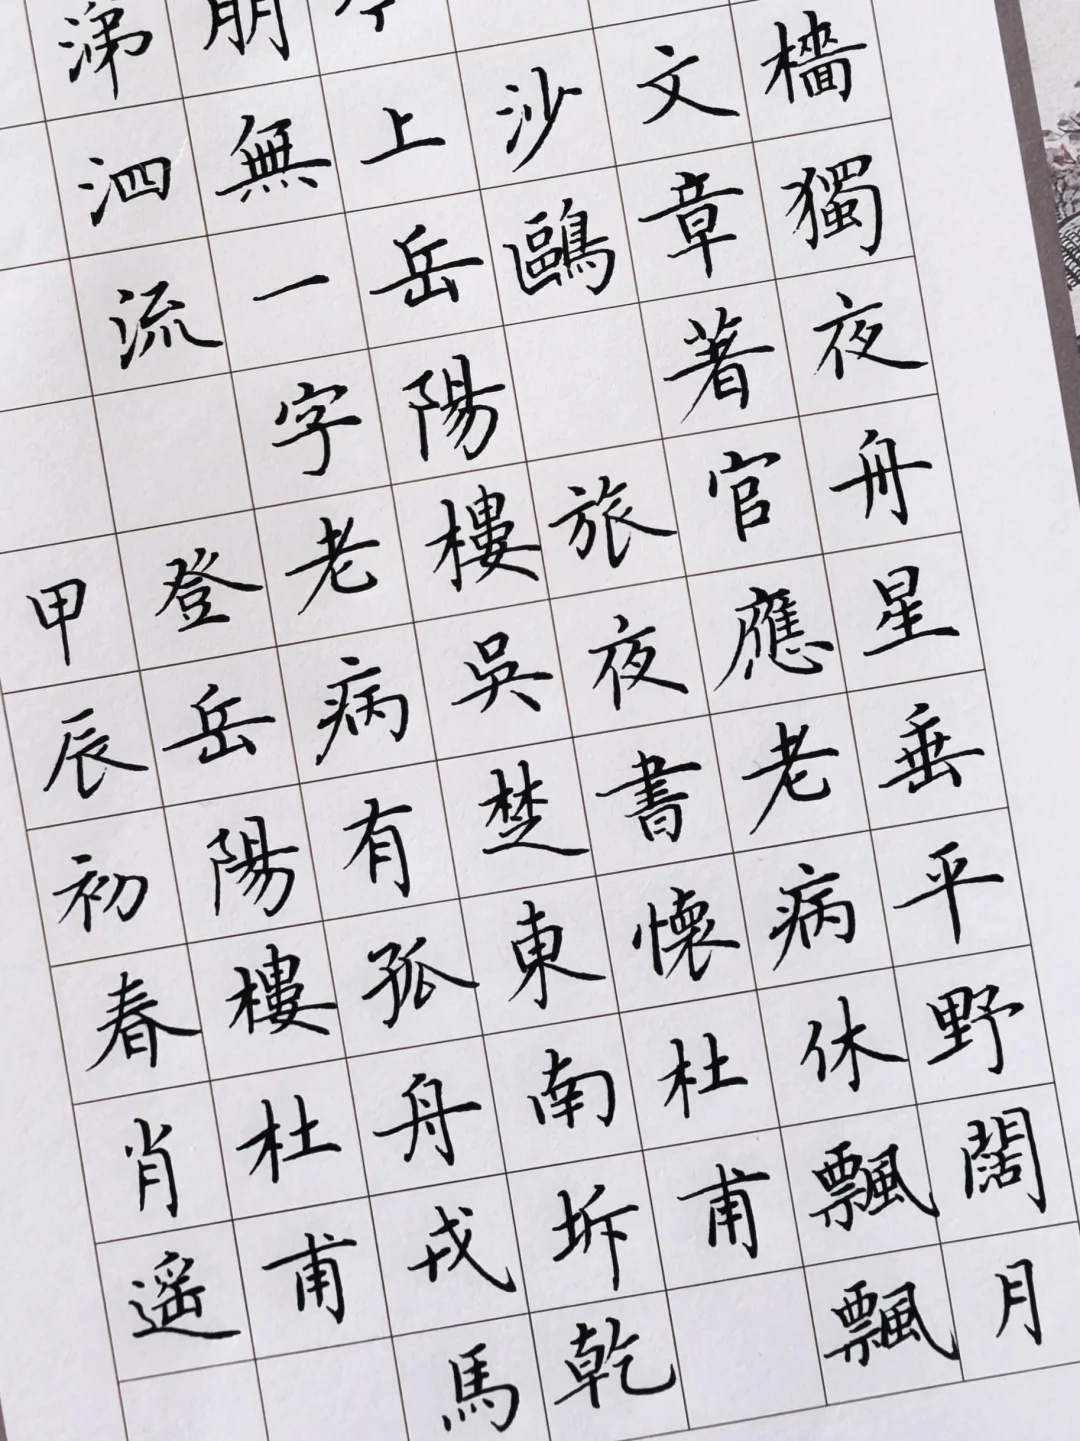 檣獨夜舟星垂平野闊月
文章著官應老病休飄飄
沙鷗 旅夜書懷杜甫
今上岳陽樓吳楚東南坼乾
朋無一字老病有孤舟戎馬
涕泗流 登岳陽樓杜甫
甲辰初春肖遥